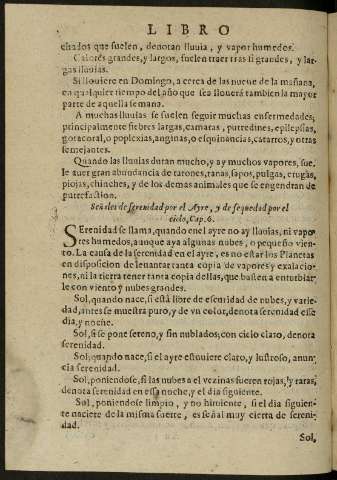 LIBRO
chados que suelen, denotan lluuia, y vapor humedos.
Calores grandes, y largos, suelen traer tras si grandes, y lar-
gas lluuias.
Si llouiere en Domingo, a cerca de las nueue de la mañana,
en qualquier tiempo del año que sea llouerá tambien la mayor
parte de aquella semana.
A muchas lluuias se suelen seguir muchas enfermedades,
principalmente fiebres largas, camaras, putredines, epilepsias,
gotacoral, o poplexias, anginas, o esquinancias, catarros, y otras
semejantes.
Quando las lluuias duran mucho, y ay muchos vapores, sue-
le auer gran abundancia de ratones, ranas, sapos, pulgas, orugas,
piojas, chinches, y de los demas animales que se engendran de
putrefaction.
Señales de serenidad por el Ayre, y de sequedad por el
cielo, Cap. 6.
SErenidad se llama, quando en el ayre no ay lluuias, ni vapo
res humedos, aunque aya algunas nubes, o pequeño vien-
to. La causa de la serenidad en el ayre, es no estar los Planetas
en disposicion de leuantar tanta copia de vapores y exalacio-
nes, ni la tierra tener tanta copia dellas, que basten a enturbiar-
le con viento y nubes grandes.
Sol, quando nace, si està libre de escuridad de nubes, y varie-
dad, antes se muestra puro, y de vn color, denota serenidad esse
dia, y noche.
Sol, si se pone sereno, y sin nublados, con cielo claro, denota
serenidad.
Sol, quando nace, si el ayre estouiere claro, y lustroso, anun-
cia serenidad.
Sol, poniendose, si las nubes a el vezinas fueren rojas, y raras,
denota serenidad en essa noche, y el dia siguiente.
Sol, poniendose limpio, y no huiente, si el dia siguien-
te naciere de la misma suerte, es señal muy cierta de sereni-
dad.
Sol,